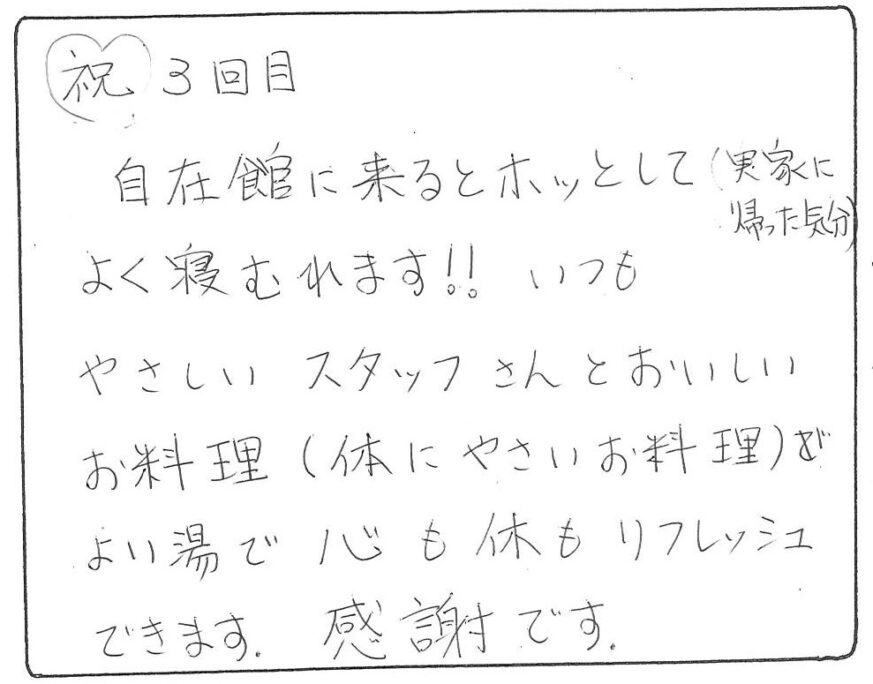 祝 3回目
自在館に来るとホッとして(実家に
帰った気分)
よく寝むれます!! いつも
やさしい スタッフさんとおいしい
お料理(体にやさいお料理)と
よい湯で 心も体もリフレッシュ
できます. 感謝です.